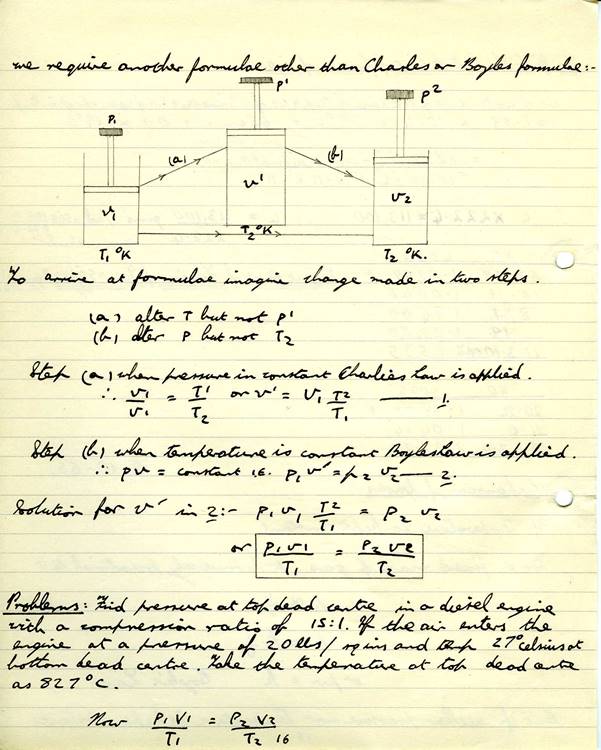 we require another formulae other than Charles or Boyles formulae:-
P₁ P¹ P²
(a) (b)
v₁ v¹ v₂
T₁ °K T₂ °K T₂ °K.
To arrive at formulae imagine change made in two steps.
(a) alter T but not P¹
(b) alter P but not T₂
Step (a) when pressure in constant Charlies Law is applied.
∴ v₁/v¹ = T¹/T₂ or v¹ = V₁ T2/T₁ —— 1.
Step (b) when temperature is constant Boyles Law is applied.
∴ pv = constant i.e. P₁ v¹ = p₂ v₂ —— 2.
Solution for v¹ in 2:- P₁ v₁ T2/T₁ = P₂ v₂
or P₁v₁/T₁ = P₂v₂/T₂
Problems: Find pressure at top dead centre in a diesel engine
with a compression ratio of 15:1. If the air enters the
engine at a pressure of 20 lbs/sq ins and temp 27° celsius at
bottom dead centre. Take the temperature at top dead centre
as 827°C.
Now P₁V₁/T₁ = P₂V₂/T₂ 16